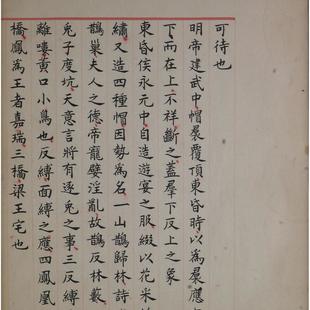 可待也
明帝建武中帽裠覆頂東昏時以為裠應
下而在上不祥斷之蓋羣下反上之象
東昏侯永元中自造遊宴之服綴以花
繡又造四種帽因勢為名一山鵲歸林詩
鵲巢夫人之德帝寵嬖淫亂故鵲反林藪
兎子度坑天意言將有逐兎之事三反縛
離嘍黃口小鳥也反縛面縛之應四鳳凰
橋鳳為王者嘉瑞三橋梁王宅也